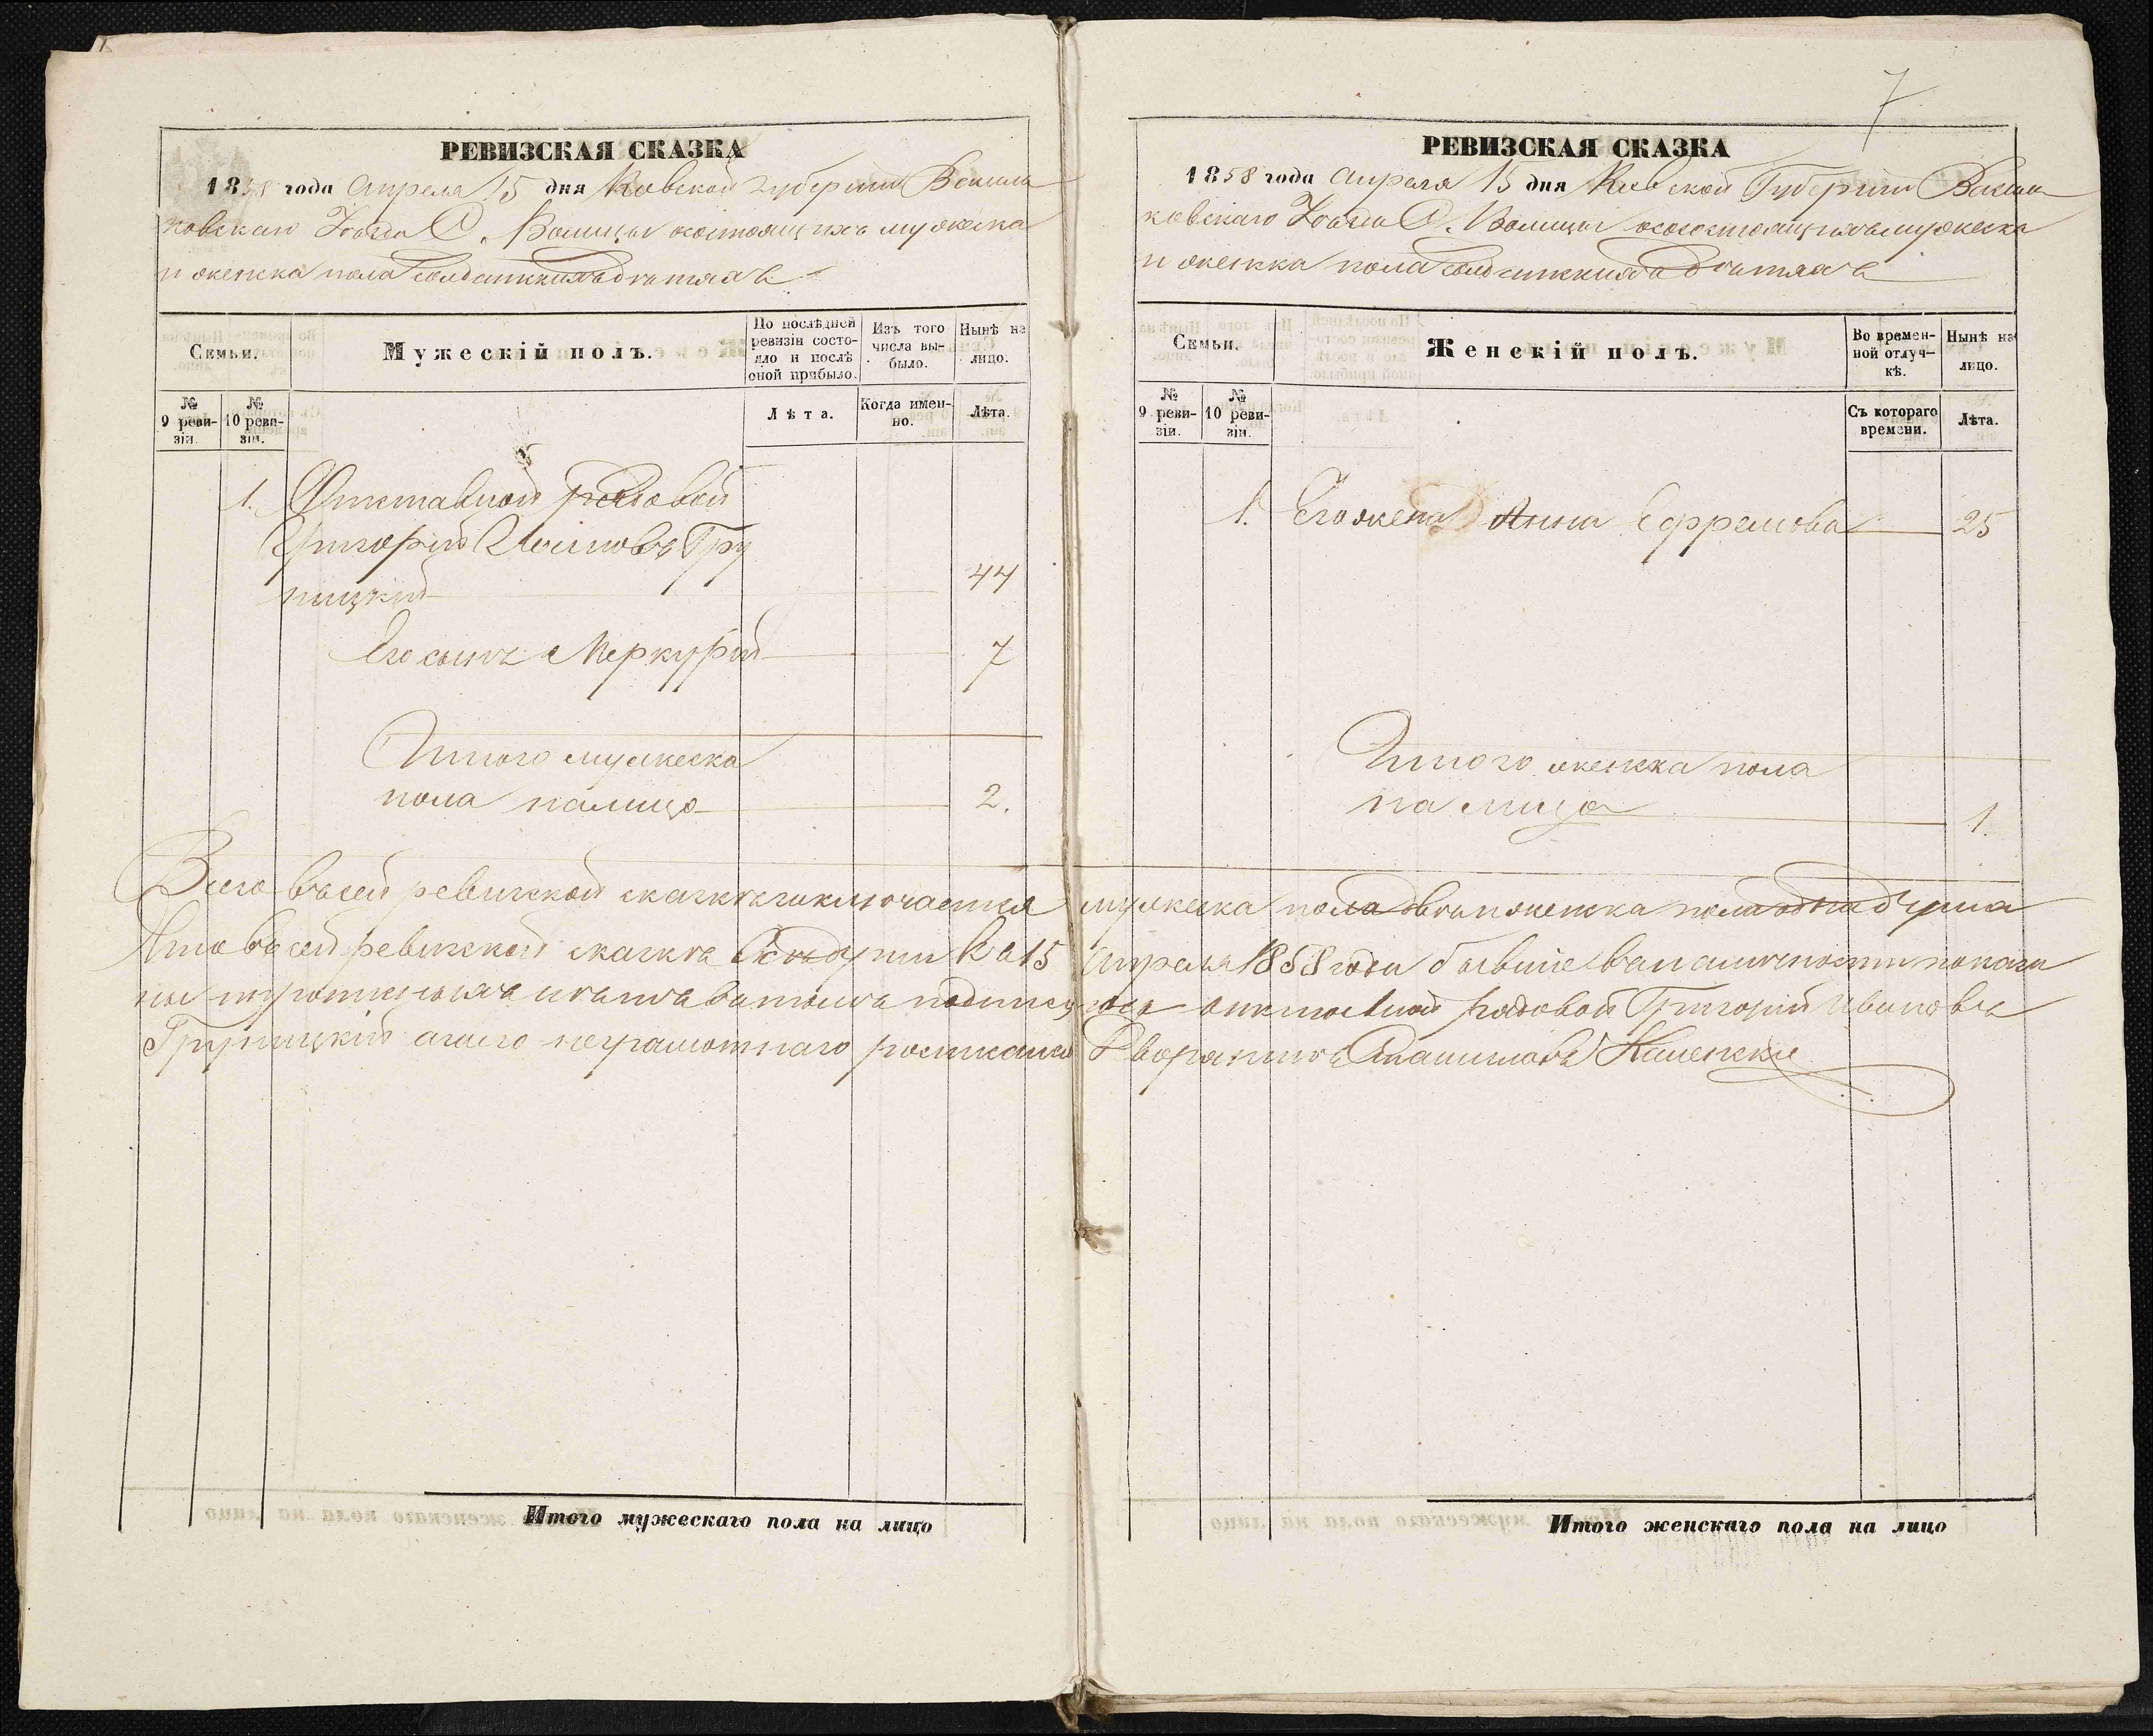 РЕВИЗСКАЯ СКАЗКА
1858 года Апреля 15 дня Киевской губернии Василь
ковскаго Уезда С. Волицы состоящихъ мужеска
и женска пола солдатскихъ детяхъ
Семьи.
Мужескій полъ.
По послѣдней ревизіи состо-
яло и послѣ оной прибыло.
Изъ того числа вы-
было.
Нынѣ на лицо.
№ 9 реви-
зіи.
№ 10 реви-
зіи.
Лѣта.
Когда имен-
но.
Лѣта.
1. Отставной рядовой
Григорій Ивановъ Гру
пицкій 44
Его сынъ Меркурій 7
Итого мужеска
пола налицо 2.
7
РЕВИЗСКАЯ СКАЗКА
1858 года Апреля 15 дня Киевской Губернии Василь
ковскаго Уезда С. Волицы состоящихъ мужеска
и женска пола солдатскихъ детяхъ
Семьи.
Женскій полъ.
Во времен-
ной отлуч-
кѣ.
Нынѣ на лицо.
№ 9 реви-
зіи.
№ 10 реви-
зіи.
Съ котораго времени.
Лѣта.
1. Его жена Анна Ефремова 25
Итого женска пола
на лицо 1.
Всего въ сей ревизской сказке заключается мужеска пола две и женска пола одна душа
Что въ сей ревизской сказке все души къ 15 Апреля 1858 года бывшие въ наличности показа
ны и пропущенныхъ нетъ въ томъ подписуюсь отставной рядовой Григорій Ивановъ
Групицкій а за его неграмотнаго росписался Дворянинъ Станиславъ Каменскій
Итого мужескаго пола на лицо
Итого женскаго пола на лицо